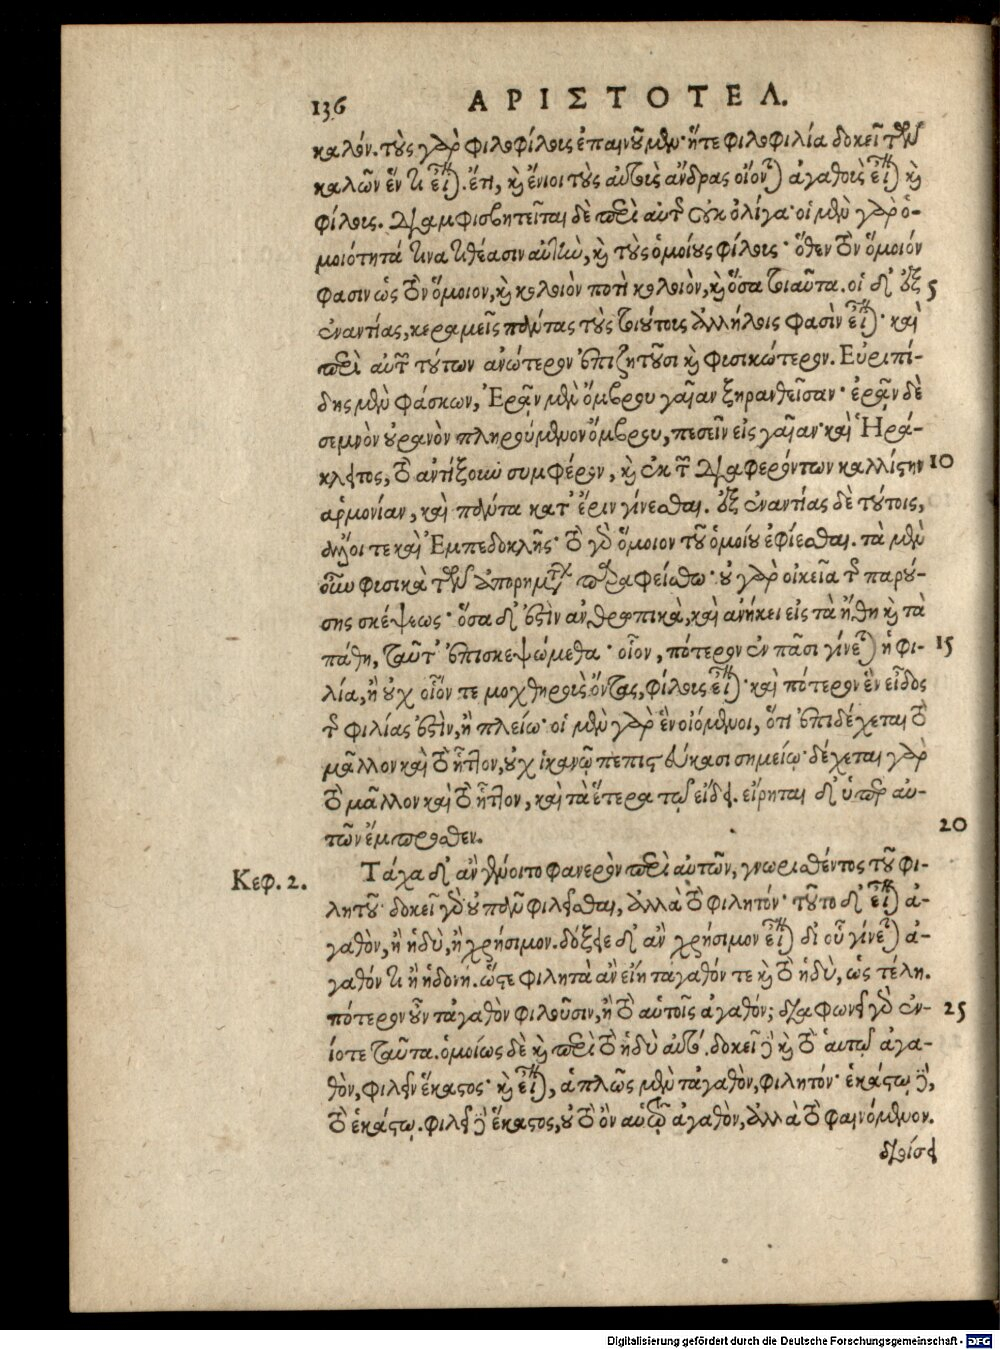 136 ΑΡΙΣΤΟΤΕΛ.
καλόν. τοὺς γὰρ φιλοφίλους ἐπαινοῦμεν· ἥ τε φιλοφιλία δοκεῖ τῶν
καλῶν ἕν τι εἶναι. ἔτι, καὶ ἔνιοι τοὺς αὐτοὺς ἄνδρας οἴονται ἀγαθοὺς εἶναι καὶ
φίλους. Διαμφισβητεῖται δὲ περὶ αὐτῆς οὐκ ὀλίγα· οἱ μὲν γὰρ ὁ-
μοιότητά τινα τιθέασιν αὐτὴν, καὶ τοὺς ὁμοίους φίλους· ὅθεν τὸν ὅμοιόν
φασιν ὡς τὸν ὅμοιον, καὶ κολοιὸν ποτὶ κολοιὸν, καὶ ὅσα τοιαῦτα. οἱ δ' ἐξ 5
ἐναντίας, κεραμεῖς πάντας τοὺς τοιούτους ἀλλήλοις φασὶν εἶναι· καὶ
περὶ αὐτῶν τούτων ἀνώτερον ἐπιζητοῦσι καὶ φυσικώτερον. Εὐριπί-
δης μὲν φάσκων, Ἐρᾷν μὲν ὄμβρου γαῖαν ξηρανθεῖσαν· ἐρᾷν δὲ
σεμνὸν οὐρανὸν πληρούμενον ὄμβρου, πεσεῖν εἰς γαῖαν· καὶ Ἡρά-
κλειτος, τὸ ἀντίξοιυ συμφέρον, καὶ ἐκ τῶν διαφερόντων καλλίστην 10
ἁρμονίαν, καὶ πάντα κατ' ἔριν γίνεσθαι. ἐξ ἐναντίας δὲ τούτοις,
ἄλλοι τε καὶ Ἐμπεδοκλῆς· τὸ γὰρ ὅμοιον τοῦ ὁμοίου ἐφίεσθαι. τὰ μὲν
οὖν φυσικὰ τῶν ἀπορημάτων παραφείσθω· οὐ γὰρ οἰκεῖα τῆς παρού-
σης σκέψεως· ὅσα δ' ἐστὶν ἀνθρωπικὰ, καὶ ἀνήκει εἰς τὰ ἤθη καὶ τὰ
πάθη, ταῦτ' ἐπισκεψώμεθα· οἷον, πότερον ἐν πᾶσι γίνεται ἡ φι- 15
λία, ἢ οὐχ οἷόν τε μοχθηροὺς ὄντας, φίλους εἶναι· καὶ πότερον ἓν εἶδος
τῆς φιλίας ἐστὶν, ἢ πλείω· οἱ μὲν γὰρ ἓν οἰόμενοι, ὅτι ἐπιδέχεται τὸ
μᾶλλον καὶ τὸ ἧττον, οὐχ ἱκανῷ πεπιστεύκασι σημείῳ· δέχεται γὰρ
τὸ μᾶλλον καὶ τὸ ἧττον, καὶ τὰ ἕτερα τῷ εἴδει. εἴρηται δ' ὑπὲρ αὐ-
τῶν ἔμπροσθεν. 20
Κεφ. 2. Τάχα δ' ἂν γένοιτο φανερὸν περὶ αὐτῶν, γνωρισθέντος τοῦ φι-
λητοῦ· δοκεῖ γὰρ οὐ πᾶν φιλεῖσθαι, ἀλλὰ τὸ φιλητόν· τοῦτο δ' εἶναι ἀ-
γαθὸν, ἢ ἡδὺ, ἢ χρήσιμον. δόξειε δ' ἂν χρήσιμον εἶναι δι' οὗ γίνεται ἀ-
γαθόν τι ἢ ἡδονή. ὥστε φιλητὰ ἂν εἴη τἀγαθόν τε καὶ τὸ ἡδὺ, ὡς τέλη.
πότερον οὖν τἀγαθὸν φιλοῦσιν, ἢ τὸ αὑτοῖς ἀγαθόν; διαφωνεῖ γὰρ ἐν- 25
ίοτε ταῦτα. ὁμοίως δὲ καὶ περὶ τὸ ἡδὺ αὐτό. δοκεῖ δὲ καὶ τὸ αὑτῷ ἀγα-
θὸν, φιλεῖν ἕκαστος· καὶ εἶναι, ἁπλῶς μὲν τἀγαθὸν, φιλητόν· ἑκάστῳ δὲ,
τὸ ἑκάστῳ. φιλεῖ δὲ ἕκαστος, οὐ τὸ ὂν αὑτῷ ἀγαθὸν, ἀλλὰ τὸ φαινόμενον.
διοίσει
Digitalisierung gefördert durch die Deutsche Forschungsgemeinschaft - DFG